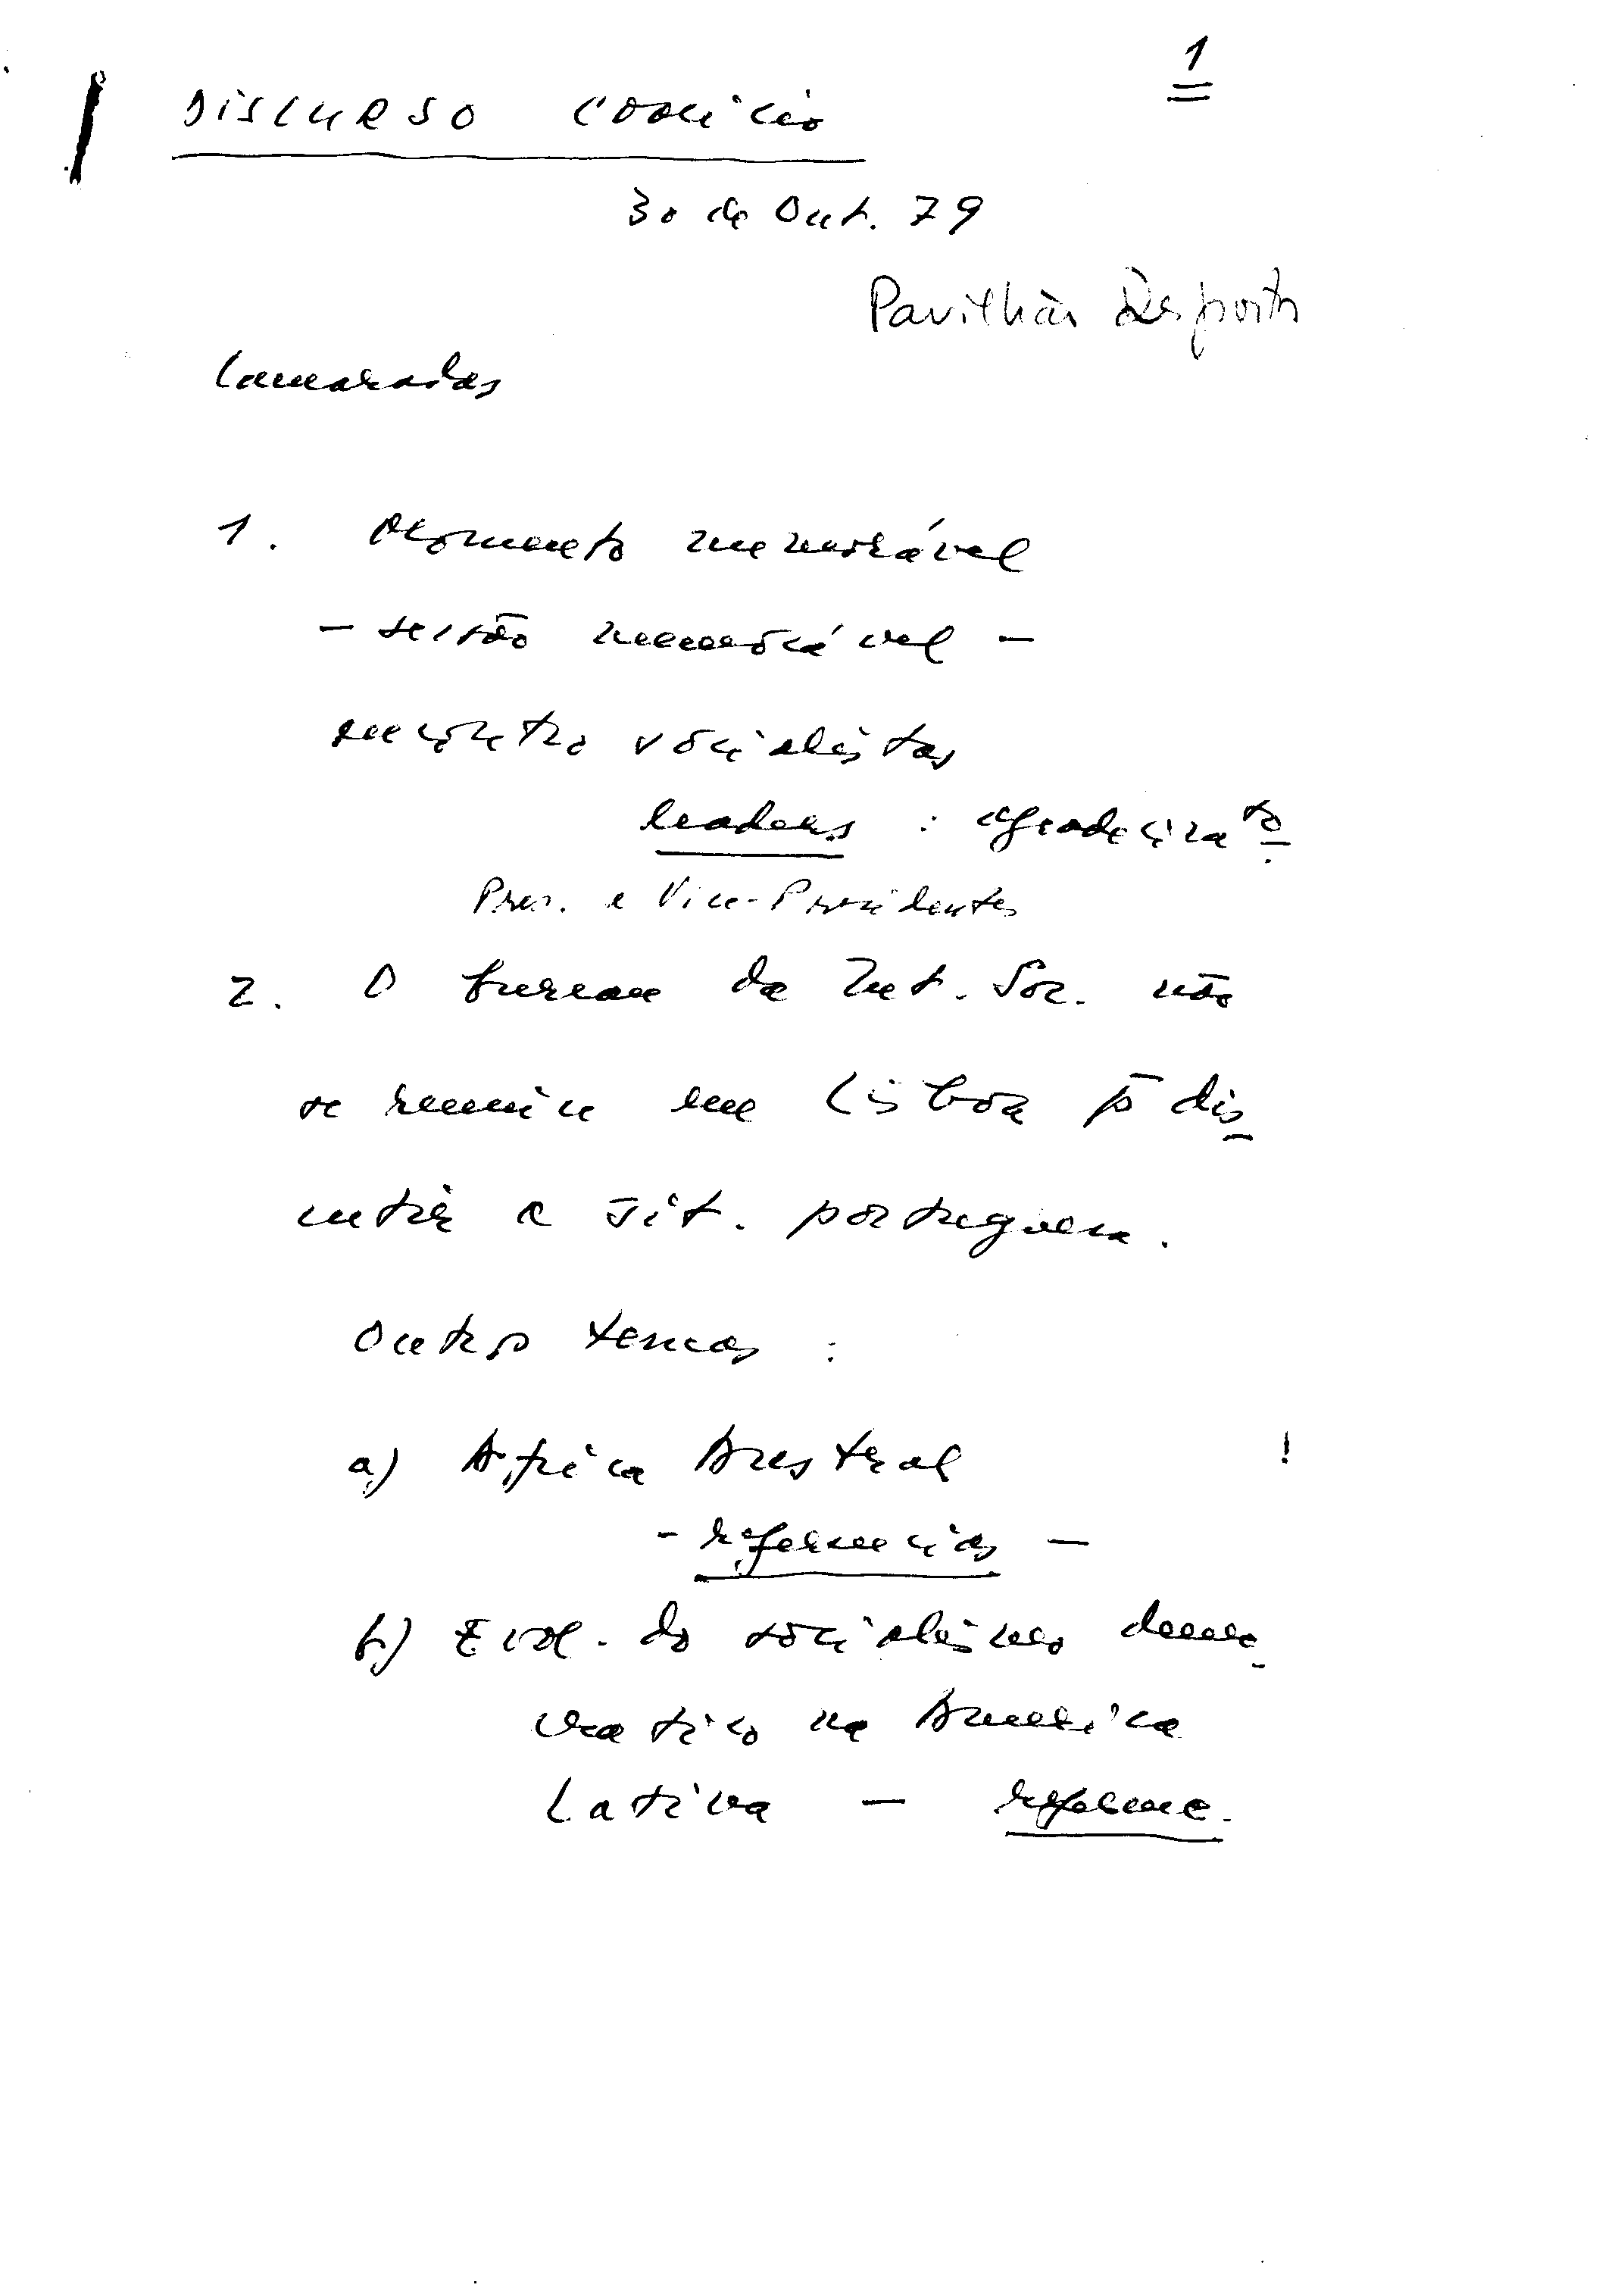 1
DISCURSO COMÍCIO
30 de Out. 79
Pavilhão Desportos
Camaradas
1. Momento memorável
- sessão memorável -
encontro socialistas
leaders : agradecimto
Pres. e Vice-Presidentes
2. O bureau da Int. Soc. não
se reuniu em Lisboa p dis
cutir a sit. portuguesa.
Outros temas :
a) África Austral
- referencias -
b) Evol. do socialismo demo
crático na América
Latina - referenc.